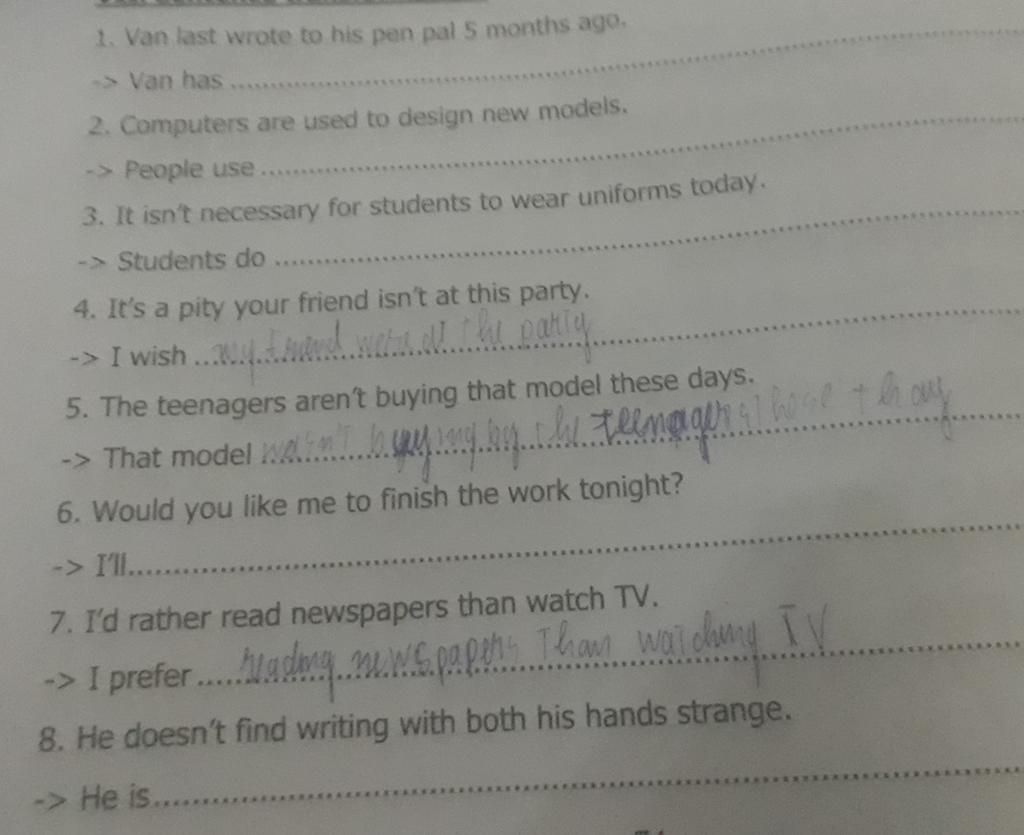 1. Van last wrote to his pen pal 5 months ago.
-> Van has ........................................
2. Computers are used to design new models.
-> People use ........................................
3. It isn't necessary for students to wear uniforms today.
-> Students do ........................................
4. It's a pity your friend isn't at this party.
-> I wish ... my friend were at the party ....................
5. The teenagers aren't buying that model these days.
-> That model wasn't buying by the teenager
6. Would you like me to finish the work tonight?
-> I'll........................................
7. I'd rather read newspapers than watch TV.
-> I prefer ..... reading newspapers than watching TV ....................
8. He doesn't find writing with both his hands strange.
-> He is........................................